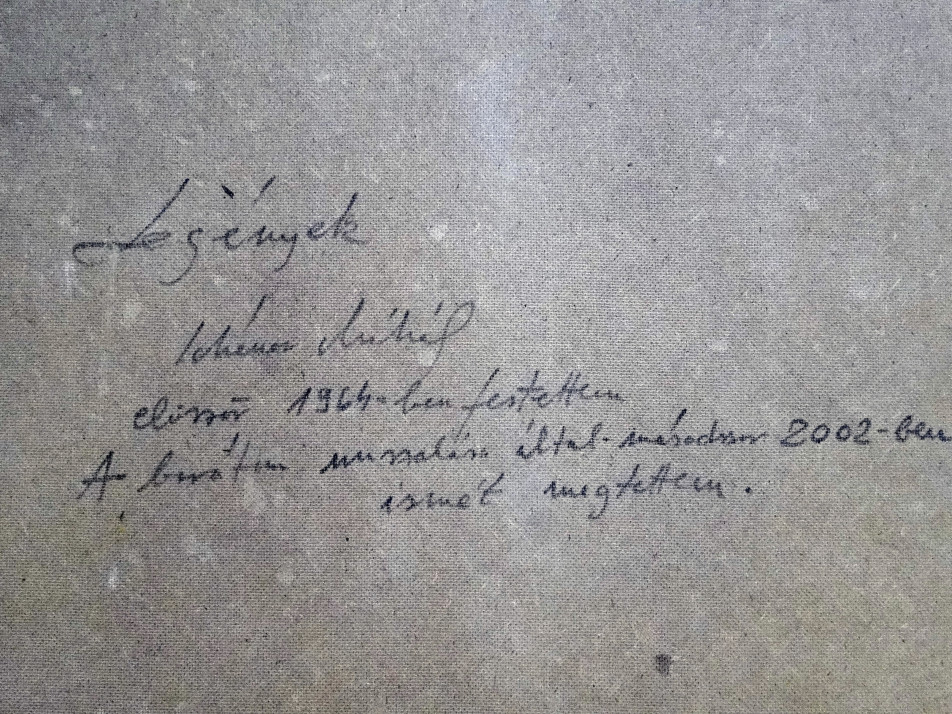 Legények
Schéner Mihály
először 1964-ben festettem
A barátim által másodszor 2002-ben
ismét megtettem.